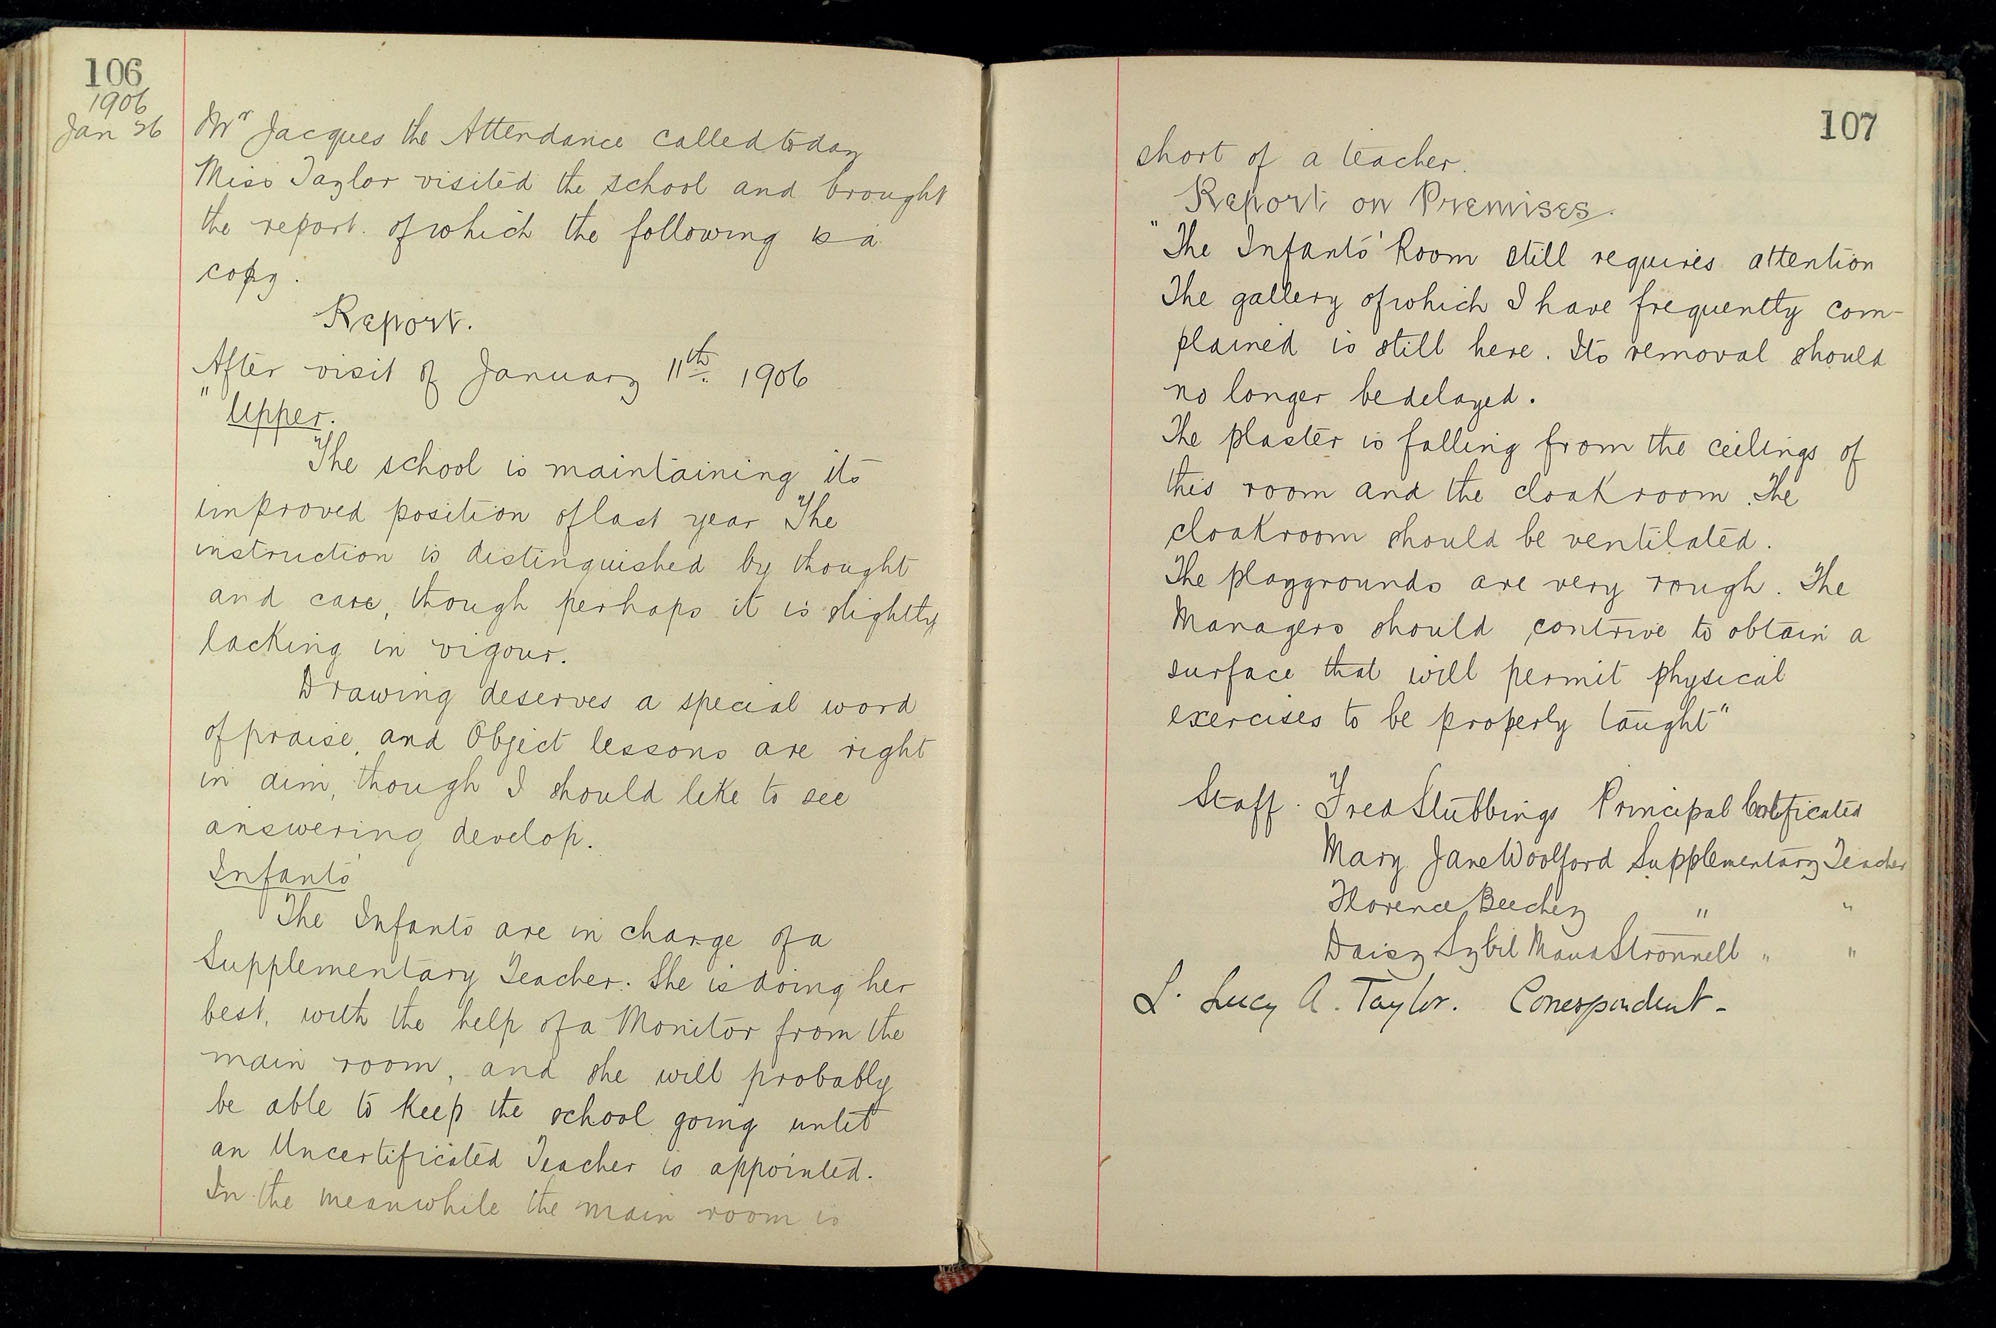 106
1906
Jan 26
Mr Jacques the Attendance called today
Miss Taylor visited the school and brought
the report of which the following is a
copy.
Report.
After visit of January 11th. 1906
" Upper.
The school is maintaining its
improved position of last year The
instruction is distinguished by thought
and care, though perhaps it is slightly
lacking in vigour.
Drawing deserves a special word
of praise, and Object lessons are right
in aim, though I should like to see
answering develop.
Infants
The Infants are in charge of a
Supplementary Teacher. She is doing her
best, with the help of a Monitor from the
main room, and she will probably
be able to keep the school going until
an Uncertificated Teacher is appointed.
In the meanwhile the main room is
107
short of a teacher.
Report on Premises.
"The Infants' Room still requires attention
The gallery of which I have frequently com-
plained is still here. Its removal should
no longer be delayed.
The plaster is falling from the ceilings of
this room and the cloakroom. The
cloakroom should be ventilated.
The playgrounds are very rough. The
Managers should contrive to obtain a
surface that will permit physical
exercises to be properly taught"
Staff. Fred Stubbings Principal Certificated
Mary Jane Woolford Supplementary Teacher
Florence Beechey " "
Daisy Sybil Maud Stronnell " "
L. Lucy A. Taylor. Correspondent -